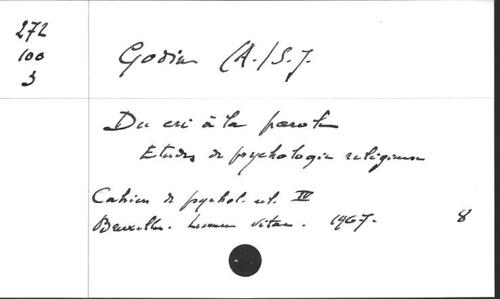 272
100
3
Godin (A.) S.J.
Du cri à la parole
Etudes de psychologie religieuse
Cahiers de psychol. rel. IV
Bruxelles. Lumen vitae. 1967. 8